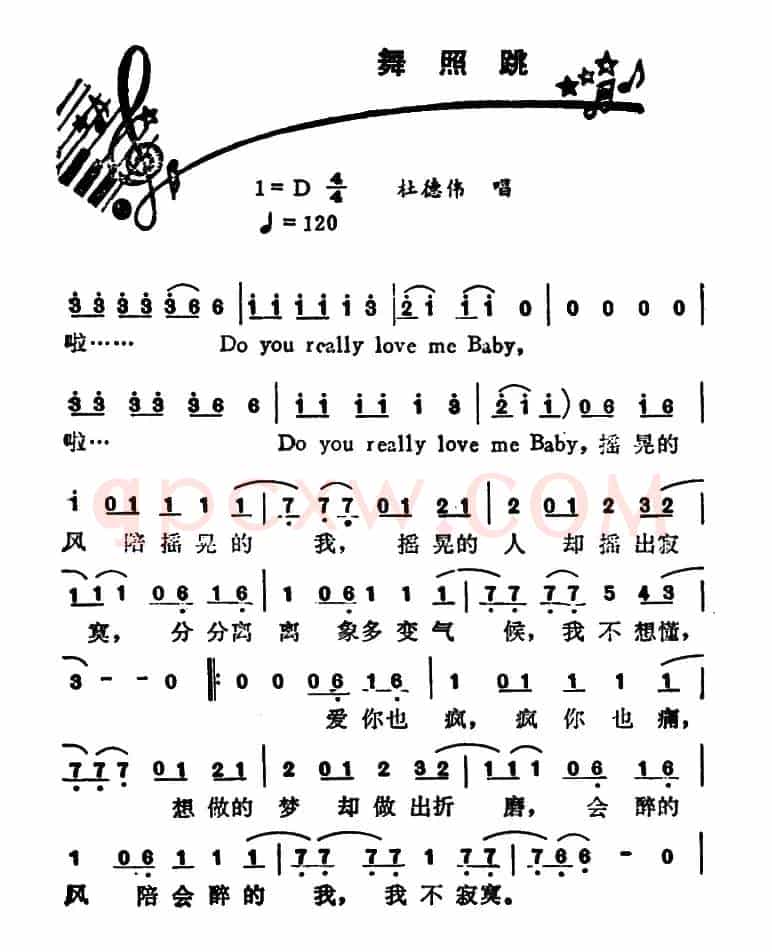 舞照跳
1=D 4/4 杜德伟 唱
♩=120
3 3 3 3 3 6 6 | 1 1 1 1 1 3 | 2 1 1 1 0 | 0 0 0 0 |
啦…… Do you really love me Baby,
3 3 3 3 3 6 6 | 1 1 1 1 1 3 | 2 1 1) 0 6 1 6 |
啦… Do you really love me Baby, 摇晃的
1 0 1 1 1 1 | 7 7 7 0 1 2 1 | 2 0 1 2 3 2 |
风 陪摇晃的 我, 摇晃的 人 却摇出寂
1 1 1 0 6 1 6 | 1 0 6 1 1 1 | 7 7 7 7 5 4 3 |
寞, 分分离 离 象多变气 候, 我不想懂,
3 - - 0 ‖: 0 0 0 6 1 6 | 1 0 1 1 1 1 |
爱你也 疯, 疯你也痛,
7 7 7 0 1 2 1 | 2 0 1 2 3 2 | 1 1 1 0 6 1 6 |
想做的 梦 却做出折 磨, 会醉的
1 0 6 1 1 1 | 7 7 7 7 1 7 7 | 0 7 6 6 - 0 |
风 陪会醉的 我, 我不寂寞。
qpcxw.COM